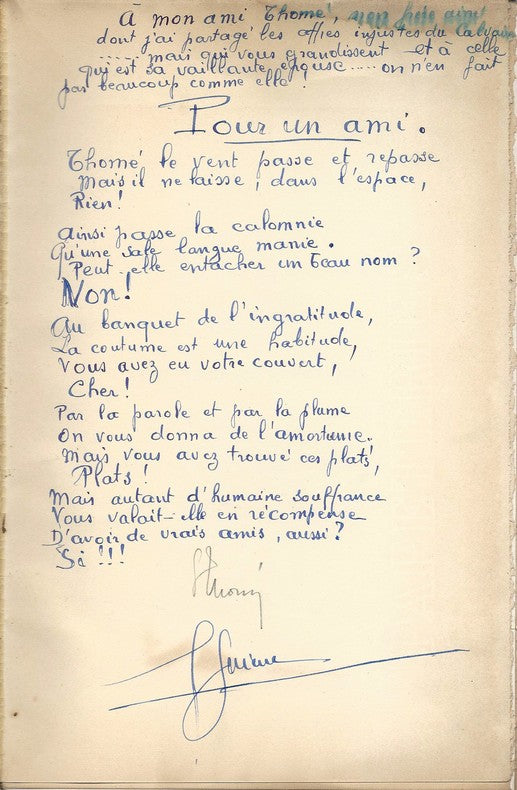 À mon ami Thomé, mon frère aimé
dont j'ai partagé les affres injustes du Calvaire
..... mais qui vous grandissent et à celle
qui est sa vaillante épouse..... on n'en fait
pas beaucoup comme elle !
Pour un ami.
Thomé le vent passe et repasse
Mais il ne laisse, dans l'espace,
Rien!
Ainsi passe la calomnie
Qu'une sale langue manie.
Peut-elle entacher un beau nom ?
Non!
Au banquet de l'ingratitude,
La coutume est une habitude,
Vous avez eu votre couvert,
Cher!
Par la parole et par la plume
On vous donna de l'amertume.
Mais vous avez trouvé ces plats,
Plats!
Mais autant d'humaine souffrance
Vous valait-elle en récompense
D'avoir de vrais amis, aussi?
Si !!!